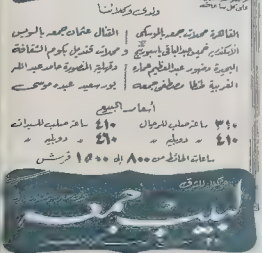 ولدى وكلائنا
القاهرة محمدت حمد بالموسكى القنال عثمان جمعه بالسويس
الاسكندرية حميده عبد الباقى ومحلات قنديل بكوم الشقافة
البحيرة دمنهور عبد العظيم عماره دقهلية المنصورة حامد عبد الظاهر
الغربية طنطا مصطفى جمعه بورسعيد عبده موسى
أسعار البيع
٣٤٠ ساعة صلب للرجال ٤١٠ ساعة صلب للسيدات
٤١٠ " دوبليه " ٤٦٠ " دوبليه "
ساعات الحائط من ٨٠٠ إلى ١٥٠٠ قرش
لبيب جمعه